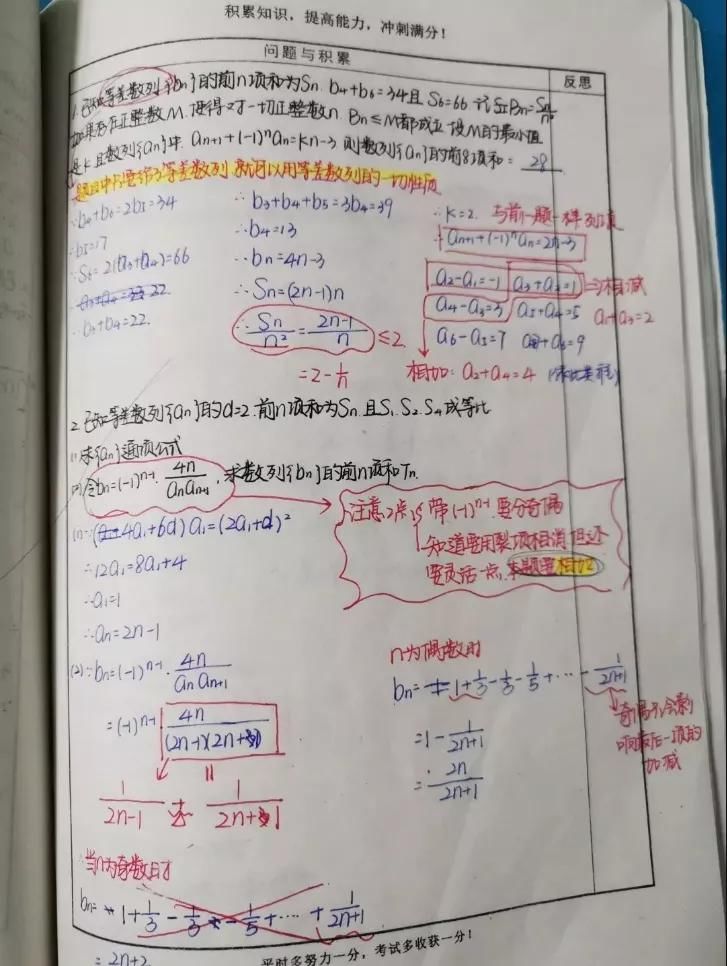 积累知识，提高能力，冲刺满分！
问题与积累
反思
1. 已知等差数列{bn}的前n项和为Sn. b4+b6=34且 S6=66 记 Bn=Sn/n²
如果存在正整数M. 使得对一切正整数n. Bn≤M都成立 设M的最小值
是k 且数列{an}中. an+1+(-1)ⁿan=kn-3 则数列{an}的前8项和= 28
题目中只要给了等差数列 就可以用等差数列的一切性质
∵b4+b6=2b5=34
∴b5=17
∵S6=2(b3+b4)=66
∴b3+b4=22.
∴b3+b4+b5=3b4=39
∴b4=13
∴bn=4n-3
∴Sn=(2n-1)n
∴Sn/n²=(2n-1)/n ≤2
=2-1/n
∴k=2. 与前一题一样列项
an+1+(-1)ⁿan=2n-3
a2-a1=-1 a3+a2=1 ⇒相减
a4-a3=3 a5+a4=5 a1+a3=2
a6-a5=7 a7+a6=9
相加: a2+a4=4
2. 已知等差数列{an}的d=2. 前n项和为Sn. 且S1. S2. S4成等比
(1)求{an}通项公式
(2)令bn=(-1)ⁿ⁻¹·4n/(an an+1), 求数列{bn}的前n项和Tn.
注意2点 带(-1)ⁿ⁻¹要分奇偶
知道要用裂项相消 但还
要灵活一点, 本题要相加
(1)∵(4a1+6d)a1=(2a1+d)²
∴12a1=8a1+4
∴a1=1
∴an=2n-1
(2)∵bn=(-1)ⁿ⁻¹·4n/(an an+1)
=(-1)ⁿ⁻¹·4n/((2n-1)(2n+1))
=
1/(2n-1) + 1/(2n+1)
n为偶数时
bn=1+1/3-1/3-1/5+⋯-1/(2n+1)
=1-1/(2n+1)
=2n/(2n+1)
奇偶会影
响最后一项的
加减
当n为奇数时
bn=1+1/3-1/3-1/5+⋯+1/(2n+1)
=2n+2
平时多努力一分，考试多收获一分！